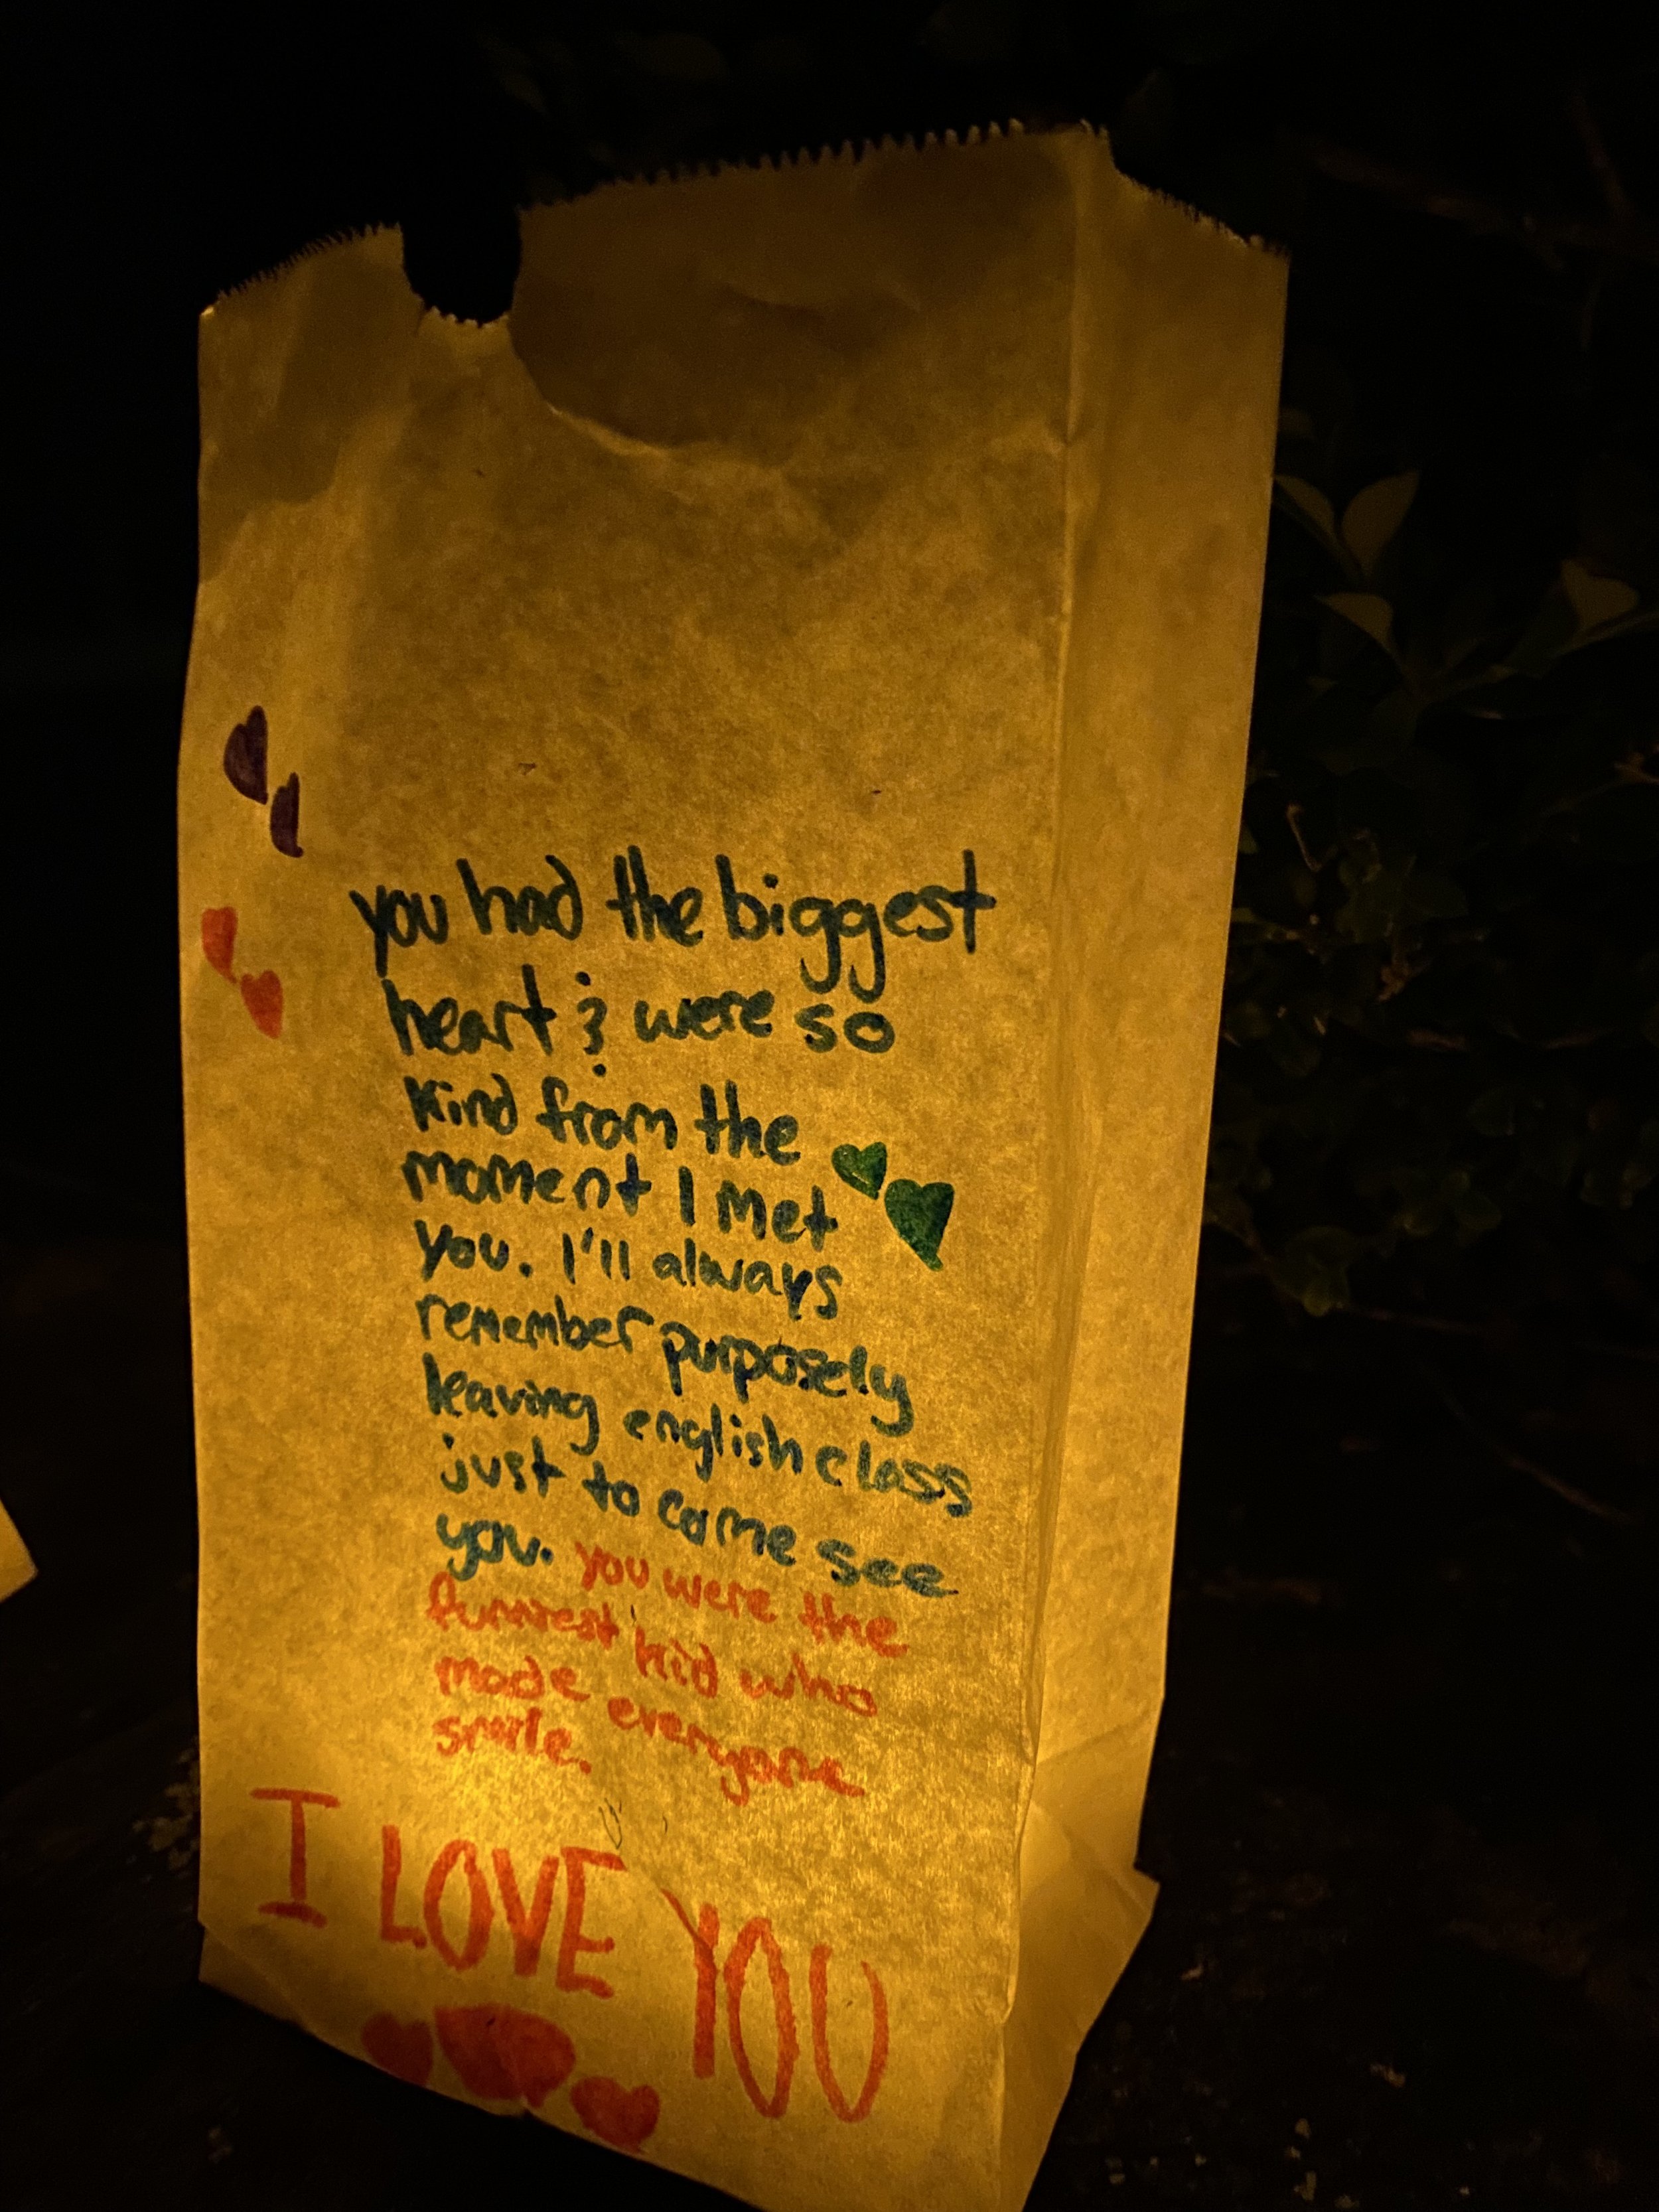 you had the biggest
heart & were so
kind from the
moment I met
you. I'll always
remember purposely
leaving english class
just to come see
you. you were the
funniest kid who
made everyone
smile.
I LOVE YOU